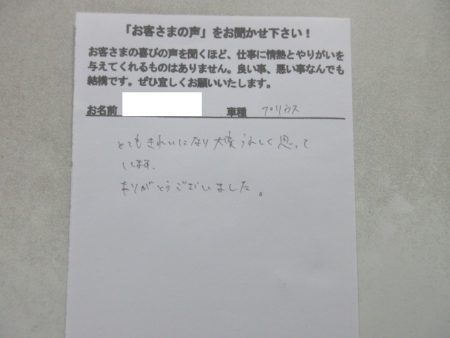 「お客さまの声」をお聞かせ下さい！
お客さまの喜びの声を聞くほど、仕事に情熱とやりがいを
与えてくれるものはありません。良い事、悪い事なんでも
結構です。ぜひ宜しくお願いいたします。
お名前 車種 プリウス
とてもきれいになり大変うれしく思って
います。
ありがとうございました。